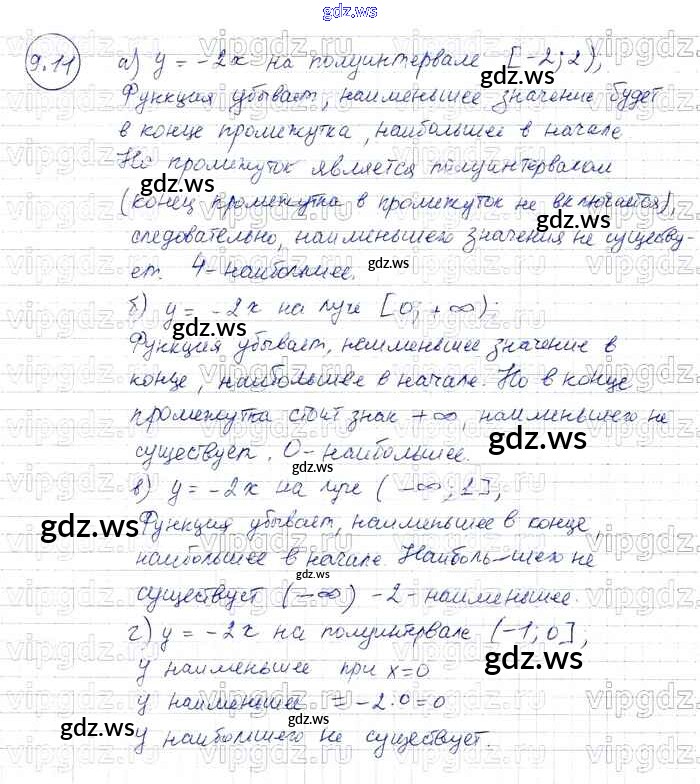 gdz.ws
9.11 а) y = -2x на полуинтервале [-2; 2),
Функция убывает, наименьшее значение будет
в конце промежутка, наибольшее в начале
Но промежуток является полуинтервалом
(конец промежутка в промежуток не включается),
следовательно, наименьшего значения не существу-
ет. 4-наибольшее.
б) y = -2x на луче [0; +∞):
Функция убывает, наименьшее значение в
конце, наибольшее в начале. Но в конце
промежутка стоит знак +∞, наименьшего не
существует, 0-наибольшее.
в) y = -2x на луче (-∞; 1],
Функция убывает, наименьшее в конце,
наибольшее в начале. Наиболь-шего не
существует (-∞) -2-наименьшее.
г) y = -2x на полуинтервале (-1; 0],
y наименьшее при x=0
y наименьшее = -2·0=0
y наибольшего не существует.